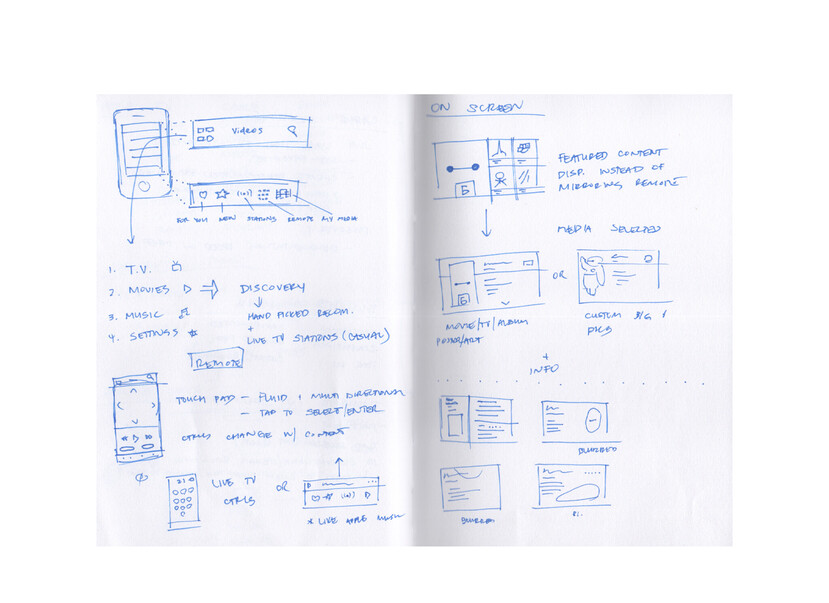 Videos
FOR YOU NEW STATIONS REMOTE MY MEDIA
1. T.V.
2. MOVIES
3. MUSIC
4. SETTINGS
DISCOVERY
HAND PICKED RECOM.
+
LIVE TV STATIONS (CASUAL)
REMOTE
TOUCH PAD – FLUID & MULTI DIRECTIONAL
– TAP TO SELECT/ENTER
CTRLS CHANGE W/ CONTENT
LIVE TV
CTRLS
OR
* LIKE APPLE MUSIC
ON SCREEN
FEATURED CONTENT
DISP. INSTEAD OF
MIRRORING REMOTE
MEDIA SELECTED
OR
MOVIE/TV/ALBUM
POSTER/ART
CUSTOM B/G &
PICS
+
INFO
BLURRED
BLURRED